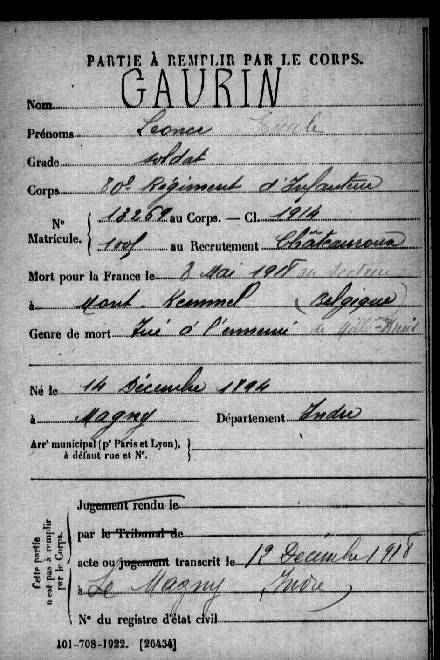 PARTIE À REMPLIR PAR LE CORPS.
Nom GAURIN
Prénoms Leonce Emile
Grade soldat
Corps 80e Régiment d'Infanterie
N° Matricule. { 13269 au Corps. — Cl. 1914
au Recrutement Châteauroux
Mort pour la France le 8 Mai 1918 au secteur
à Mont-Kemmel (Belgique)
Genre de mort Tué à l'ennemi de
Né le 14 Décembre 1894
à Magny Département Indre
Arrt municipal (pr Paris et Lyon), à défaut rue et N°. }
Cette partie n'est pas à remplir par le Corps.
Jugement rendu le
par le Tribunal de
acte ou jugement transcrit le 12 Décembre 1918
à Le Magny Indre
N° du registre d'état civil
101-708-1922. [26434]